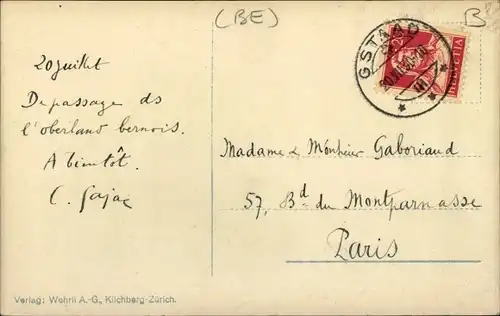 (BE)
B
20
HELVETIA
GSTAAD
20 juillet
De passage ds
l'oberland bernois.
A bientôt.
Madame & Monsieur Gaboriaud
57, Bd du Montparnasse
Paris
Verlag: Wehrli A.-G., Kilchberg-Zürich.